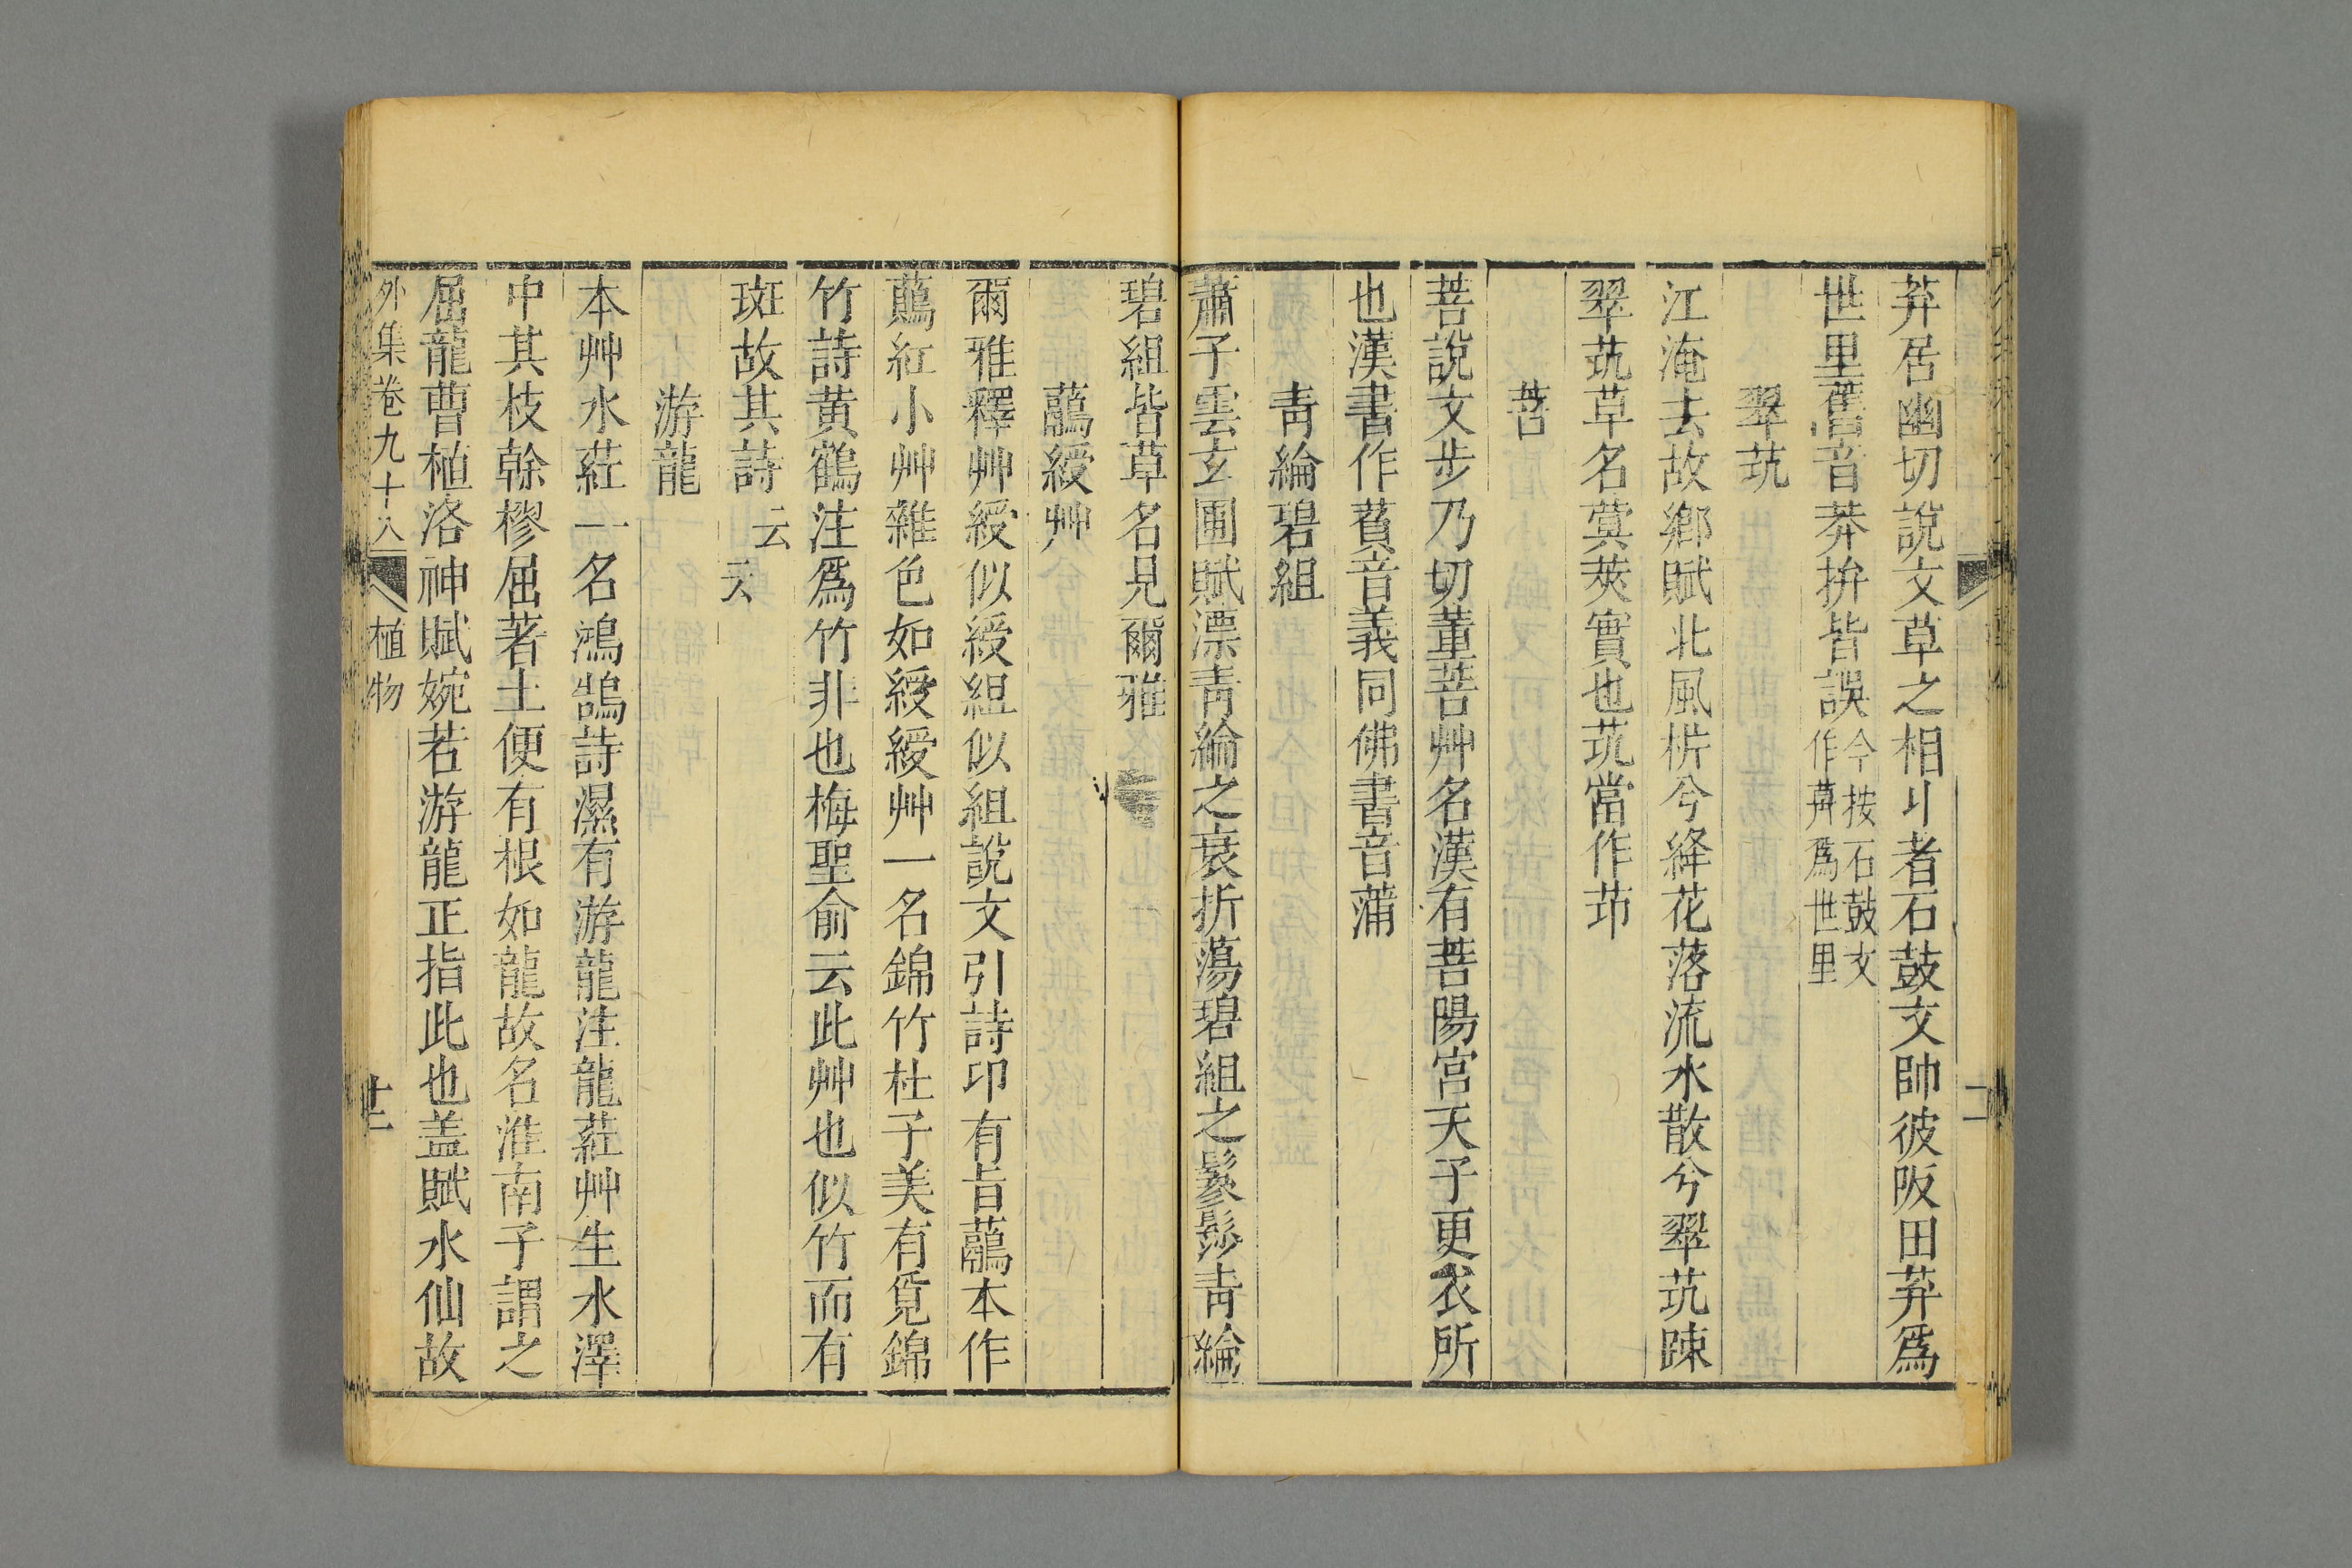 茻居幽切說文草之相丩者石鼓文帥彼阪田茻爲
世里舊音莽拚皆誤今按石鼓文作茻爲世里
翠茿
江淹去故鄉賦北風㭊兮絳花落流水散兮翠茿踈
翠茿草名蓂莢實也茿當作茚
菩
菩說文步乃切董菩艸名漢有菩陽宮天子更衣所
也漢書作萯音義同佛書音蒲
青綸碧組
蕭子雲玄圃賦漂青綸之衰折蕩碧組之鬖髿青綸
碧組皆草名見爾雅
虉綬艸
爾雅釋艸綬似綬組似組說文引詩卭有旨虉本作
鷊紅小艸雜色如綬綬艸一名錦竹杜子美有覓錦
竹詩黄鶴注爲竹非也梅聖俞云此艸也似竹而有
斑故其詩云云
游龍
本艸水葒一名鴻䳽詩濕有游龍注龍葒艸生水澤
中其枝榦樛屈著土便有根如龍故名淮南子謂之
屈龍曹植洛神賦婉若游龍正指此也盖賦水仙故
外集卷九十八 植物 十二